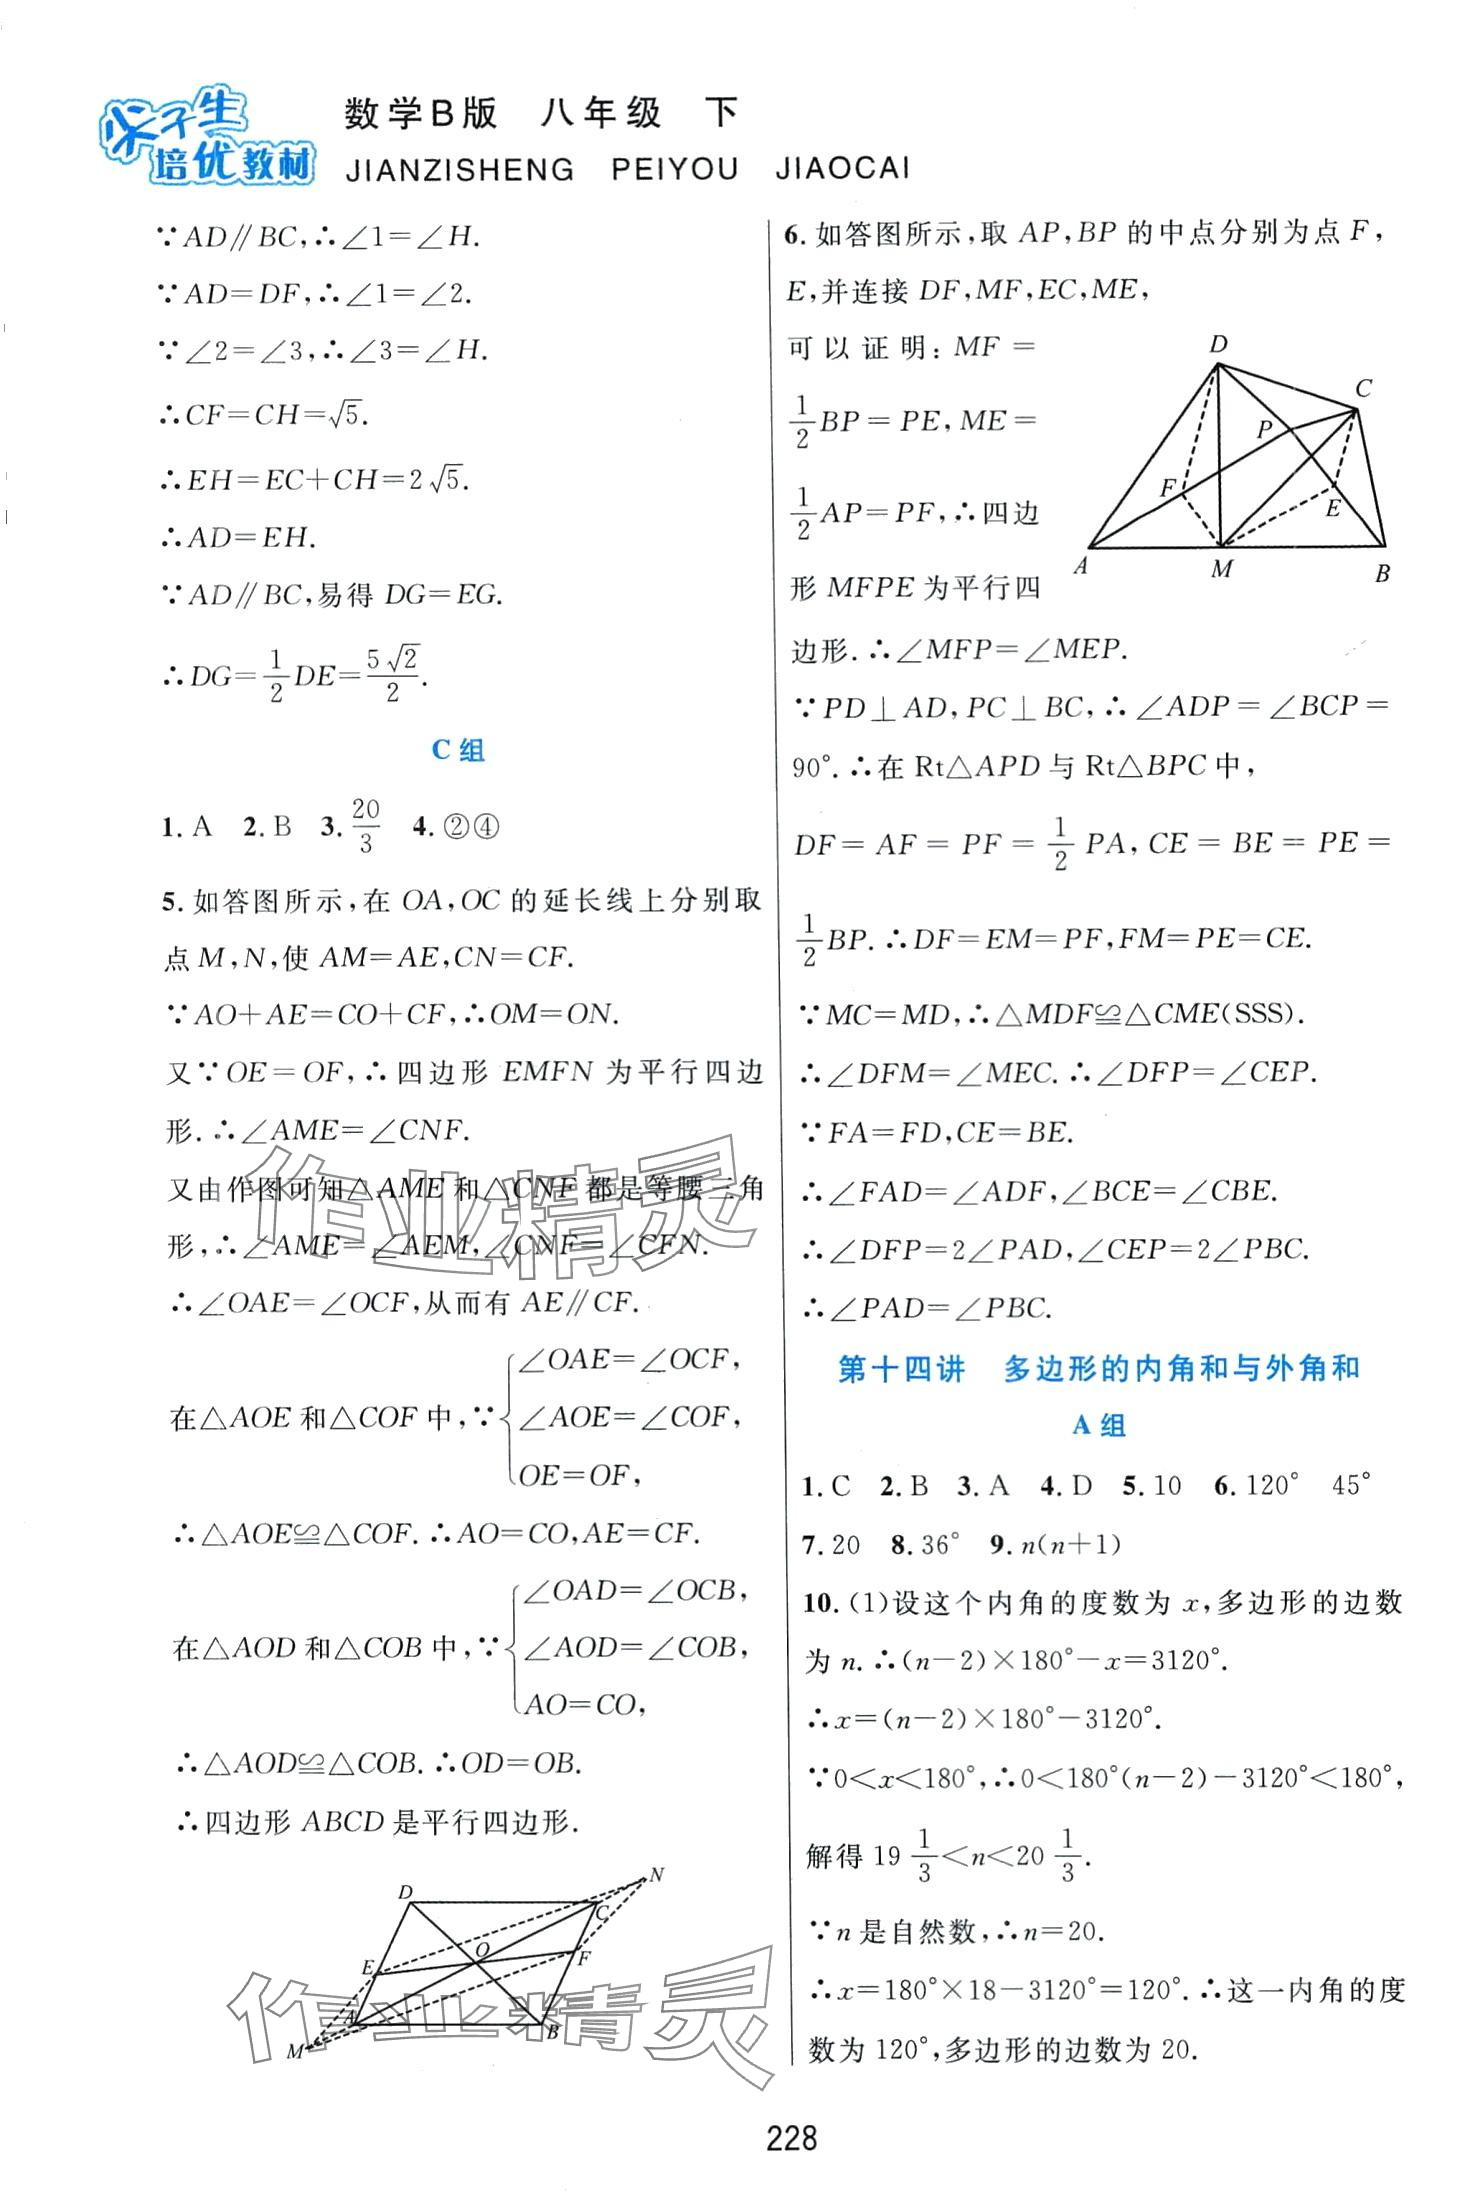 尖子生
培优教材
数学B版 八年级 下
JIANZISHENG PEIYOU JIAOCAI
∵AD∥BC,∴∠1=∠H.
∵AD=DF,∴∠1=∠2.
∵∠2=∠3,∴∠3=∠H.
∴CF=CH=√5.
∴EH=EC+CH=2√5.
∴AD=EH.
∵AD∥BC,易得 DG=EG.
∴DG=1/2DE=5√2/2.
C组
1. A 2. B 3. 20/3 4. ②④
5. 如答图所示,在 OA,OC 的延长线上分别取
点 M,N,使 AM=AE,CN=CF.
∵AO+AE=CO+CF,∴OM=ON.
又∵OE=OF,∴四边形 EMFN 为平行四边
形.∴∠AME=∠CNF.
又由作图可知△AME 和△CNF 都是等腰三角
形,∴∠AME=∠AEM,∠CNF=∠CFN.
∴∠OAE=∠OCF,从而有 AE∥CF.
在△AOE 和△COF 中,∵{∠OAE=∠OCF,
∠AOE=∠COF,
OE=OF,
∴△AOE≌△COF.∴AO=CO,AE=CF.
在△AOD 和△COB 中,∵{∠OAD=∠OCB,
∠AOD=∠COB,
AO=CO,
∴△AOD≌△COB.∴OD=OB.
∴四边形 ABCD 是平行四边形.
N
D
C
O
E
F
A
B
M
6. 如答图所示,取 AP,BP 的中点分别为点 F,
E,并连接 DF,MF,EC,ME,
可以证明:MF=
1/2BP=PE,ME=
1/2AP=PF,∴四边
形 MFPE 为平行四
边形.∴∠MFP=∠MEP.
D
C
P
F
E
A
M
B
∵PD⊥AD,PC⊥BC,∴∠ADP=∠BCP=
90°.∴在 Rt△APD 与 Rt△BPC 中,
DF=AF=PF=1/2PA,CE=BE=PE=
1/2BP.∴DF=EM=PF,FM=PE=CE.
∵MC=MD,∴△MDF≌△CME(SSS).
∴∠DFM=∠MEC.∴∠DFP=∠CEP.
∵FA=FD,CE=BE.
∴∠FAD=∠ADF,∠BCE=∠CBE.
∴∠DFP=2∠PAD,∠CEP=2∠PBC.
∴∠PAD=∠PBC.
第十四讲 多边形的内角和与外角和
A组
1. C 2. B 3. A 4. D 5. 10 6. 120° 45°
7. 20 8. 36° 9. n(n+1)
10. (1)设这个内角的度数为 x,多边形的边数
为 n.∴(n-2)×180°-x=3120°.
∴x=(n-2)×180°-3120°.
∵0<x<180°,∴0<180°(n-2)-3120°<180°,
解得 19 1/3<n<20 1/3.
∵n 是自然数,∴n=20.
∴x=180°×18-3120°=120°.∴这一内角的度
数为 120°,多边形的边数为 20.
作业精灵
作业精灵
228